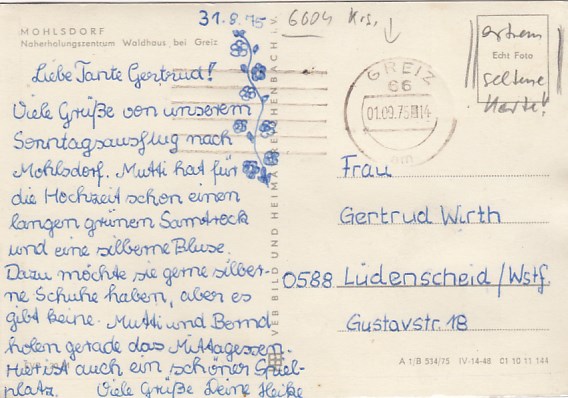 MOHLSDORF
Naherholungszentrum Waldhaus bei Greiz
31.8.75
6604 Krs.
extrem
Echt Foto
seltene
Karte!
GREIZ
66
01.09.75
14
Liebe Tante Gertrud!
Viele Grüße von unserem
Sonntagsausflug nach
Mohlsdorf. Mutti hat für
die Hochzeit schon einen
langen grünen Samtrock
und eine silberne Bluse.
Dazu möchte sie gerne silber-
ne Schuhe haben, aber es
gibt keine. Mutti und Bernd
holen gerade das Mittagessen.
Hier ist auch ein schöner Spiel-
platz. Viele Grüße Deine Heike
VEB BILD UND HEIMAT REICHENBACH I.V.
Frau
Gertrud Wirth
0588 Lüdenscheid/Westf.
Gustavstr. 18
A 1/B 534/75 IV-14-48 01 10 11 144